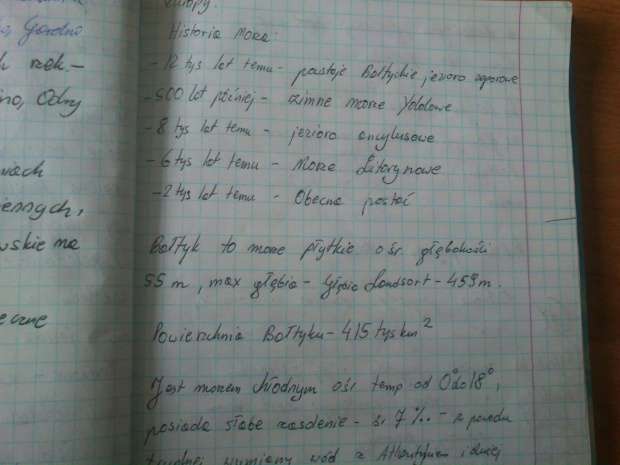 Gardno
Europy.
Historia Morza:
h rzek. -
- 12 tys lat temu - powstaje Bałtyckie jezioro zaporowe
Odry
- 500 lat później - zimne morze Yoldowe
- 8 tys lat temu - jezioro ancylusowe
- 6 tys lat temu - Morze Litorynowe
- 2 tys lat temu - Obecna postać
iennych,
wskie na
Bałtyk to morze płytkie o śr. głębokości
55 m, max głębia - Głębia Landsort - 459 m.
eczne
Powierzchnia Bałtyku - 415 tys km²
Jest morzem chłodnym o śr. temp od 0° do 18°,
posiada słabe zasolenie - śr 7 ‰ - z powodu
wymiany wód z Atlantykiem i dużej